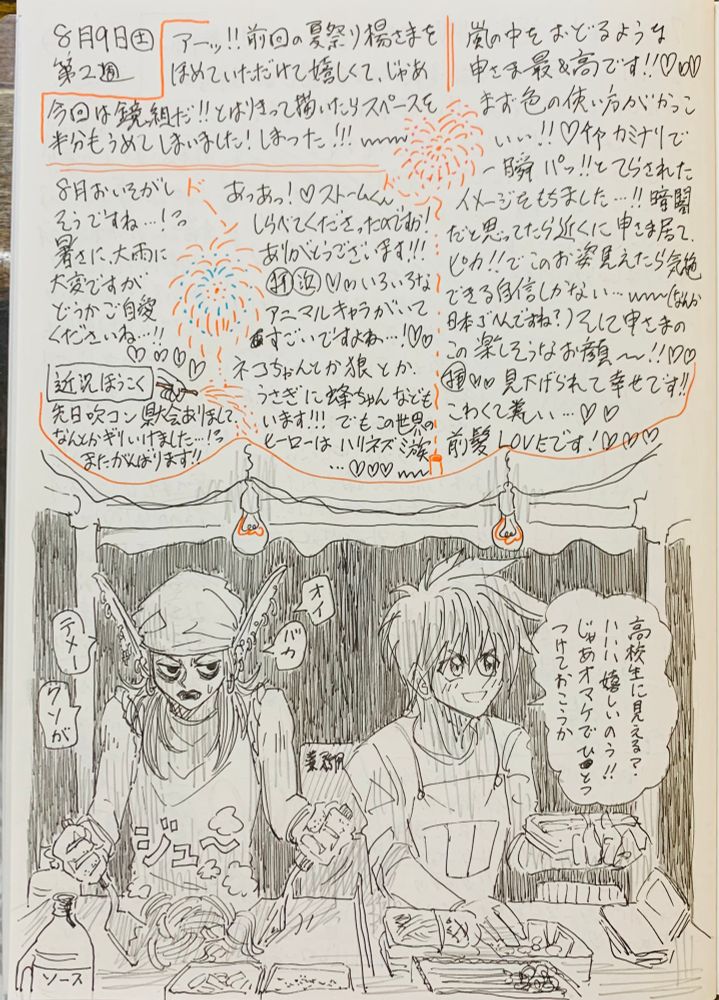 8月9日(土)
第2週
アーッ!!前回の夏祭り楊さまを
ほめていただけて嬉しくて、じゃあ
今回は鏡組だ!!とはりきって描いたらスペースを
半分もうめてしまいました!しまった!!!
8月おいそがし
そうですね…!っ
暑さに、大雨に
大変ですが
どうかご自愛
くださいね…!!
♡♡♡♡
近況ほうこく
先日吹コン県大会ありまして、
なんとかギリいけました…!っ
またがんばります!!
ド
ド
あっあっ!♡ストームくん
しらべてくださったのですか!
ありがとうございます!!!
いろいろな
アニマルキャラがいて
すごいですよね…!♡♡
ネコちゃんとか狼とか、
うさぎに蜂ちゃんなども
います!!!でもこの世界の
ヒーローはハリネズミ族
…♡♡♡
嵐の中をおどるような
申さま最&高です!!♡♡
まず色の使い方がかっこ
いい!!♡カミナリで
一瞬パッ!!とてらされた
イメージをもちました…!!暗闇
だと思ってたら近くに申さま居て、
ピカ!!でこのお姿見えたら気絶
できる自信しかない…(なんか
日本ゴですね?)そして申さまの
この楽しそうなお顔〜!!♡♡
見下げられて幸せです!!
こわくて美しい…♡♡
前髪LOVEです!♡♡♡
テメー
クソが
オイ
バカ
高校生に見える?
ハハハ嬉しいのう!!
じゃあオマケでひとつ
つけておこうか
ジュ〜
ソース